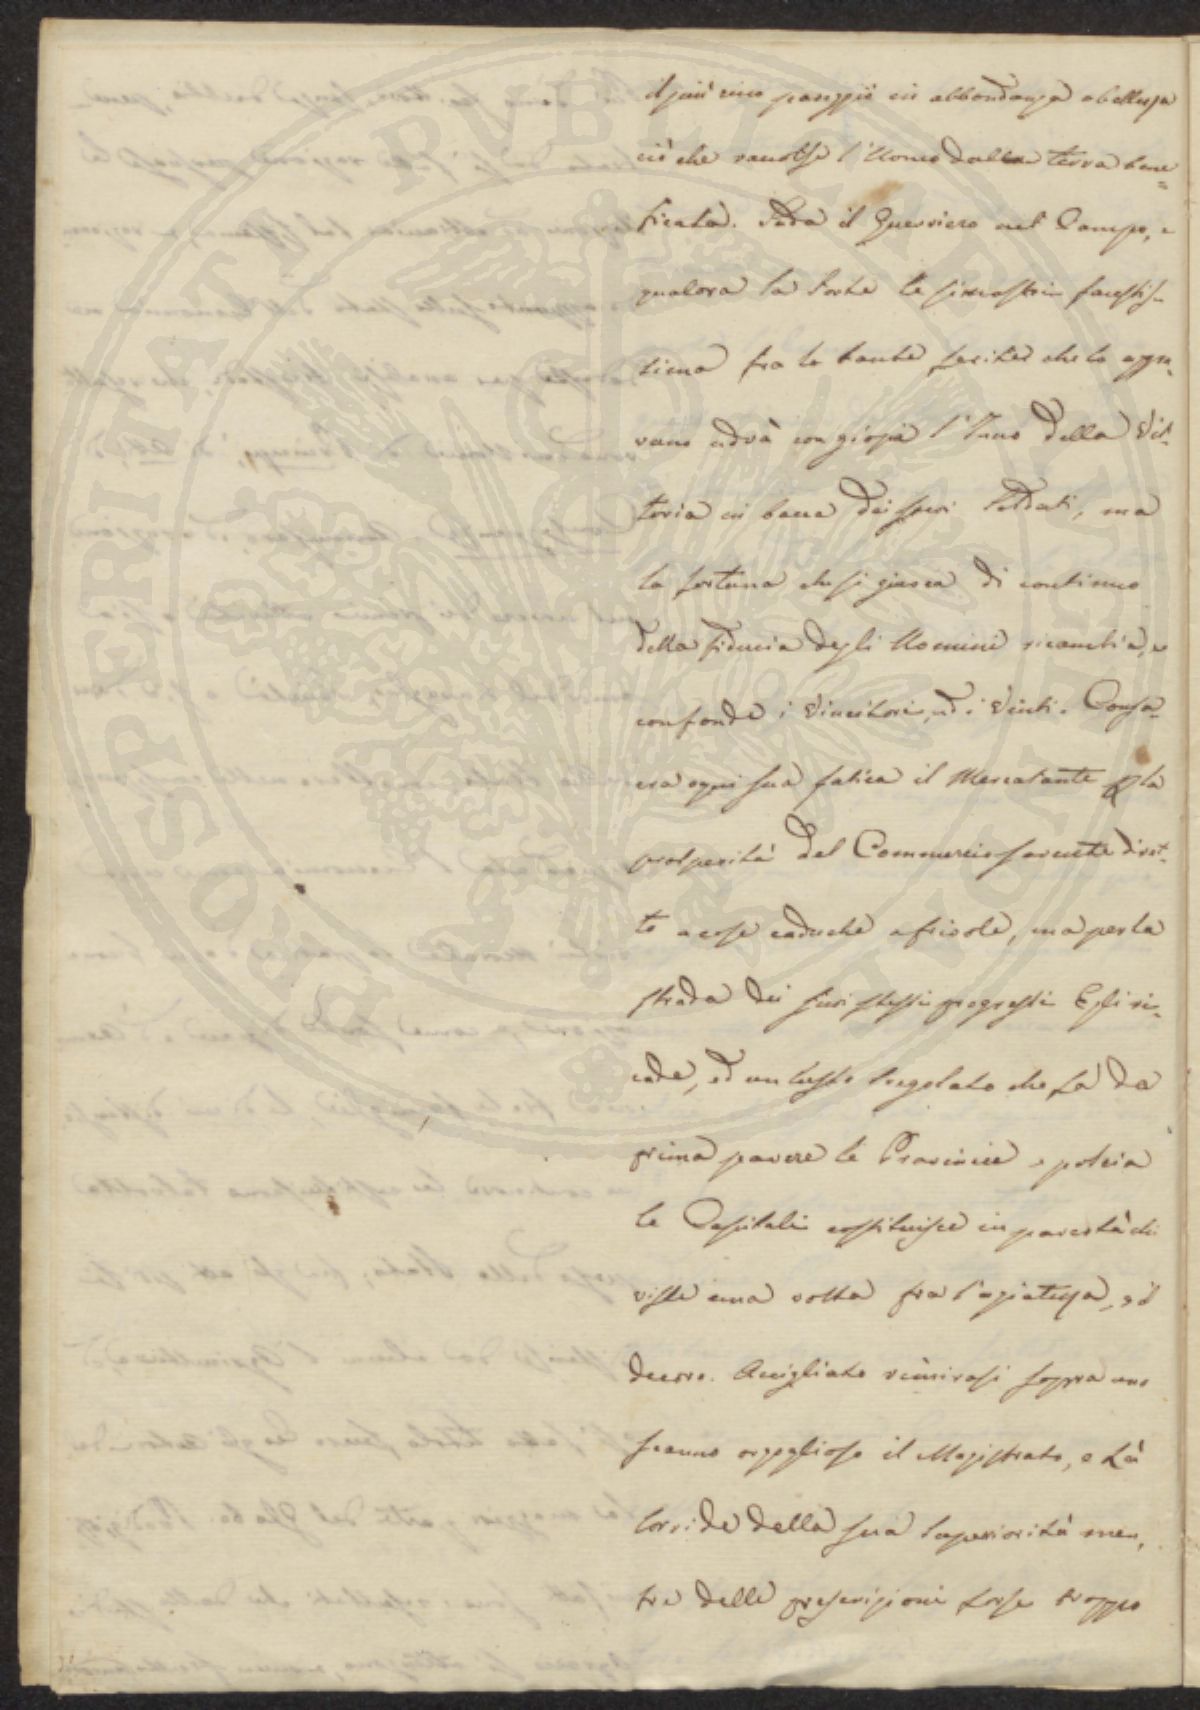 il più ricco pareggiò in abbondanza e bellezza
ciò che raccolse l'Uomo dalla terra bene=
ficata. Suda il Guerriero nel Campo, e
qualora la sorte le si mostri faustis-
sima fra le tante ferite che lo aggra-
vano udrà con gioja l'Inno della Vit-
toria in bocca dei suoi soldati, ma
la fortuna che si giuoca di continuo
della fiducia degli Uomini ricambia, e
confonde i Vincitori, ed i Vinti. Consa-
cra ogni sua fatica il Mercatante p la
prosperità del Commercio sovente diret-
to a cose caduche e frivole, ma per la
strada dei suoi stessi progressi Egli ri-
cade, ed un lusso sregolato che fà da
prima povere le Provincie e poscia
le Capitali costituisce in povertà chi
visse una volta fra l'agiatezza, ed il
decoro. Accigliato rimirasi sopra uno
scanno orgoglioso il Magistrato, e fà
sorride della sua superiorità men-
tre delle prescrizioni forse troppo
PROSPERITATI PUBLICAE